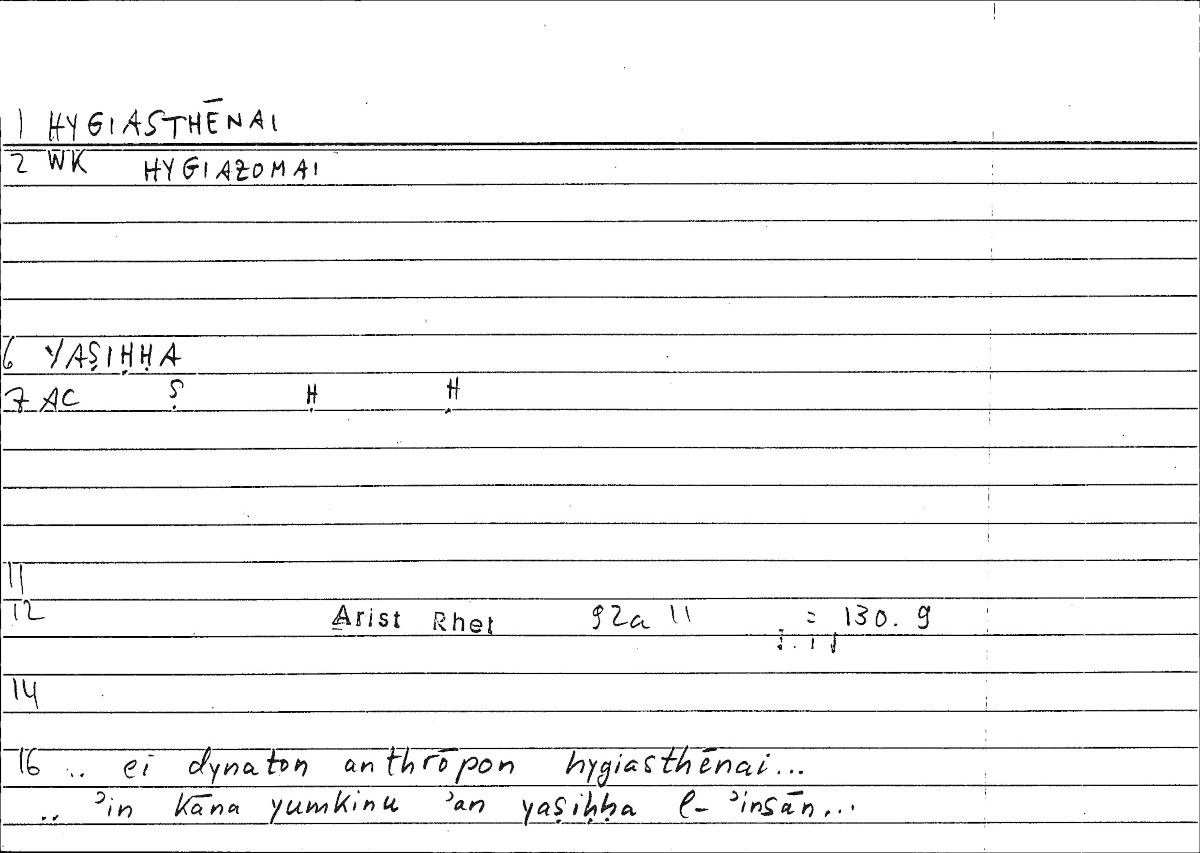 1 HYGIASTHĒNAI
2 WK HYGIAZOMAI
6 YAṢIḤḤA
7 AC Ṣ Ḥ Ḥ
11
12 Arist Rhet 92a 11 = 130. 9
14
16 .. ei dynaton anthrōpon hygiasthēnai...
.. ʾin kāna yumkinu ʾan yaṣiḥḥa l- ʾinsān...